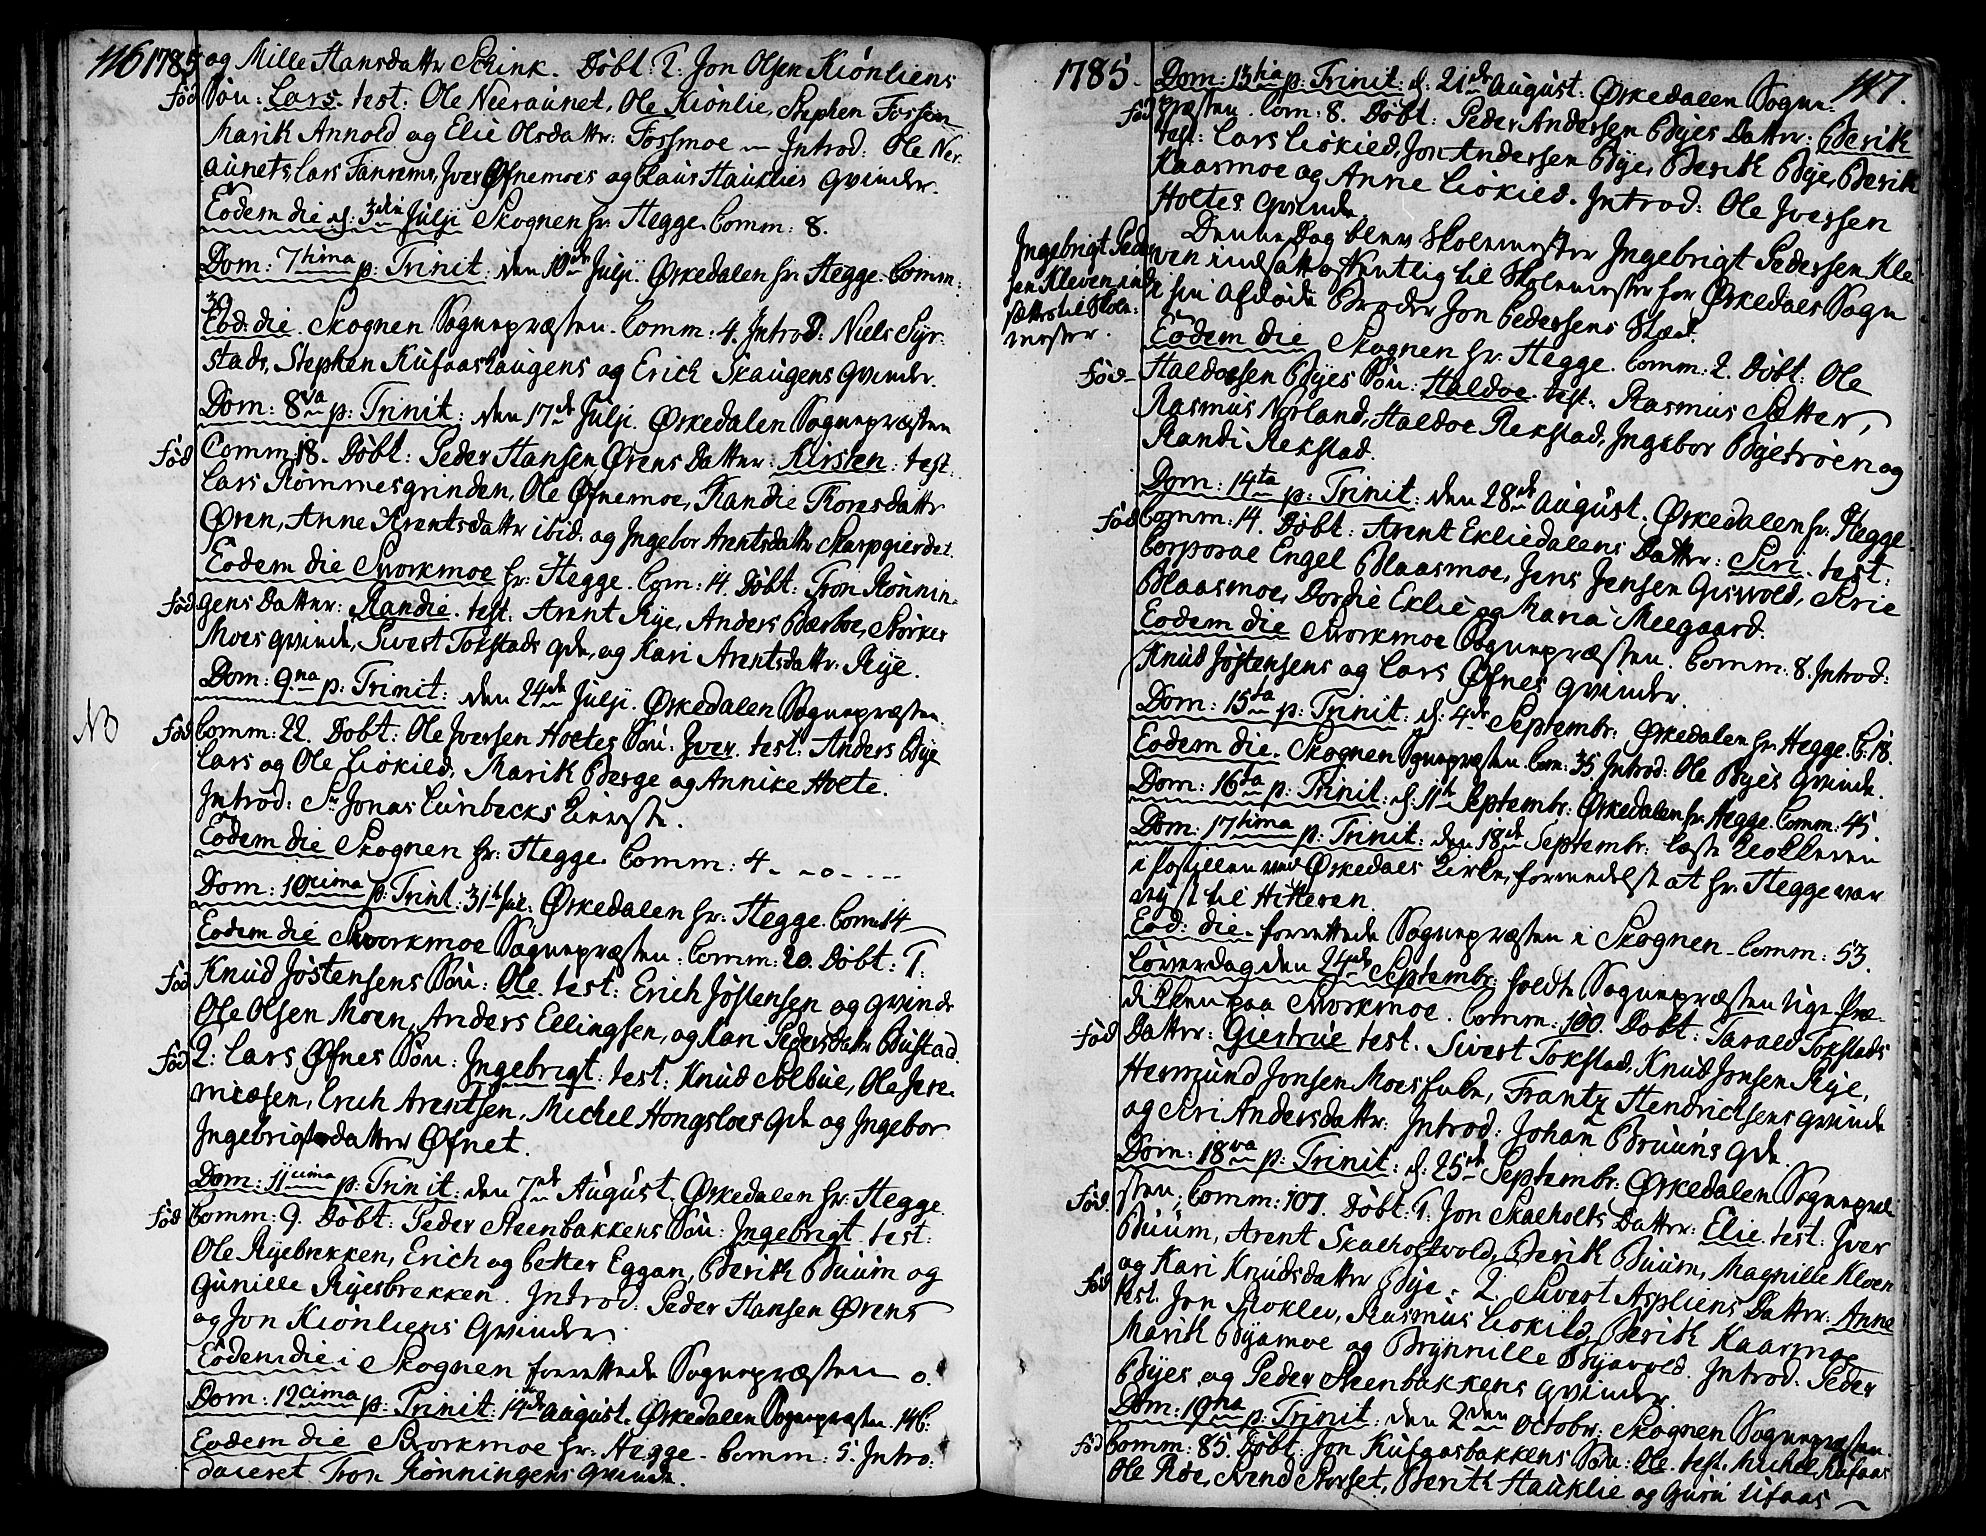 116 1785 og Mille Hansdattr Schink. Døbt: 2. Jon Olsen Kiønliens
Fød Søn: Lars. test: Ole Neeraunet, Ole Kiønlie, Stephen Fossem
Marit Annold og Elie Olsdattr: Fossmoe — Introd: Ole Ner-
aunets, Lars Fanrems, Iver Øfnemoes og Claus Hauklies Qvinder.
Eodem die d: 3die Julji Skognen hr: Hegge. Comm: 8.
Dom: 7tima p: Trinit: den 10de Julji. Ørkedalen hr: Hegge. Comm:
30.
Eod: die. Skognen Sognepræsten. Comm: 4. Introd: Niels Syr-
stads, Stephen Kufaashaugens og Erich Skaugens Qvinder.
Dom: 8va p: Trinit: den 17de Julji. Ørkedalen Sognepræsten
Fød Comm: 18. Døbt: Peder Hansen Ørens Datter: Kirsten: test:
Lars Rømmesgrinden, Ole Øfnemoe, Randie Thoresdattr
Øren, Anne Arentsdattr ibid. og Ingebor Arentsdattr Skarpgierdet.
Eodem die Svorkmoe hr: Hegge. Com: 14. Døbt: Tron Rønnin-
Fød gens Datter: Randie. test: Arent Rye, Anders Bærboe, Størker
Moes qvinde, Sivert Tokstads qde, og Kari Arentsdattr: Rye.
Dom: 9na p: Trinit: den 24de Julji. Ørkedalen Sognepræsten.
NB Fød Comm: 22. Døbt: Ole Iversen Holtes Søn: Iver. test: Anders Bye
Lars og Ole Liøkied, Marit Berge og Annike Holte.
Introd: Sr Jonas Lünbecks Kiereste.
Eodem die Skognen hr: Hegge. Comm: 4 - - o - - - -
Dom: 10cima p: Trinit: 31te Jul: Ørkedalen hr: Hegge. Com: 14
Eodem die Svorkmoe Sognepræsten: Comm: 20. Døbt: 1:
Fød Knud Jøstensens Søn: Ole. test: Erich Jøstensen og qvinde
Ole Olsen Moen, Anders Ellingsen, og Kari Pedersdattr Bustad.
Fød 2: Lars Øfnes Søn: Ingebrigt: test: Knud Solbue, Ole Jere-
miæsen, Erich Arentsen, Michel Hongsloes qde og Ingebor
Ingebrigtsdatter Øfnet.
Dom: 11cima p: Trinit: den 7de August, Ørkedalen hr: Hegge.
Fød Comm: 9. Døbt: Peder Steenbakkens Søn: Ingebrigt. test:
Ole Ryebrekken, Erich og Petter Eggan, Berith Buum og
Gunille Ryesbrekken. Introd: Peder Hansen Ørens
og Jon Kiønliens Qvinder.
Eodem die i Skognen forrettede Sognepræsten o.
Dom: 12cima p: Trinit: 14de august. Ørkedalen Sognepræsten. 14 C:
Eodem die Svorkmoe hr: Hegge. Comm: 5. Intro-
duceret Tron Rønningens Qvinde.
1785. Dom: 13tia p: Trinit: d: 21de August. Ørkedalen Sogne- 117.
Fød præsten. Com: 8. Døbt: Peder Andersen Byes Datter: Berith
test: Lars Liøkied, Jon Andersen Bye, Berith Bye, Berith
Kaasmoe og Anne Liøkied. Introd: Ole Iversen
Holtes Qvinde.
Denne Dag blev Skolemester Ingebrigt Pedersen Kle-
ven indsatt offentlig til Skolemester for Ørkedals Sogn
i sin afdøde Broder Jon Pedersens Stæd.
Ingebrigt Peder-
sen Kleven ind-
sættes til Skole-
mester.
Eodem die Skognen hr: Hegge. Comm: 2. Døbt: Ole
Fød Haldorsen Byes Søn: Haldor. test: Rasmus Sætter,
Rasmus Norland, Haldor Rekstad, Ingebor Byetrøen og
Randi Rekstad.
Dom: 14ta p: Trinit: den 28de August. Ørkedalen hr: Hegge
Fød Comm: 14. Døbt: Arent Ekliedalens Datter: Siri. test:
Corporal Engel Blaasmoe, Jens Jensen Giswold, Sirie
Blaasmoe, Dordie Eklie og Maria Meegaard.
Eodem die Svorkmoe Sognepræsten. Comm: 8. Introd:
Knud Jøstensens og Lars Øfnes Qvinder.
Dom: 15ta p: Trinit: d: 4de Septembr: Ørkedalen hr: Hegge. C: 18.
Eodem die. Skognen Sognepræsten. Com: 35. Introd: Ole Byes Qvinde.
Dom: 16ta p: Trinit: d: 11te Septembr: Ørkedalen hr: Hegge. Comm: 45.
Dom: 17tima p: Trinit: den 18de Septembr: læste Klokkeren
i Postillen ved Ørkedals Kirke, formedelst at hr: Hegge var
reyst til Hitteren.
Eod: die. forrettede Sognepræsten i Skognen. Comm: 53.
Løverdag den 24de Septembr: holdte Sognepræsten Uge-Præ-
diken paa Svorkmoe. Comm: 100. Døbt: Tarald Tokstads
Fød Datter: Giertrue test. Sivert Tokstad, Knud Jonsen Rye,
Hermund Jonsen Moes, Frantz Hendrichsens qvinde
og Siri Andersdattr: Introd: Johan Bruuns qde.
Dom: 18va p: Trinit: d: 25de Septembr: Ørkedalen Sognepræ-
Fød sten. Comm: 101. Døbt: 1: Jon Skalholts Datter: Elie. test: Iver
Buum, Arent Skalholtvold, Berith Buum, Magnille Kloen
og Kari Knudsdatter Bye. Fød 2: Sivert Aspliens Datter: Anne
test. Jon Rokler, Rasmus Liøkild, Berith Kaasmoe
Marit Byamoe og Brynnille Byavold. Introd. Peder
Byes og Peder Steenbakkens Qvinder.
Dom: 19na p: Trinit: den 2den Octobr: Skognen Sognepræsten
Fød Comm: 85. Døbt: Jon Kufaasbakkens Søn: Ole. test. Michel Kufaas
Ole Røe, Svend Storset, Berith Hauklie og Guru Ufaas